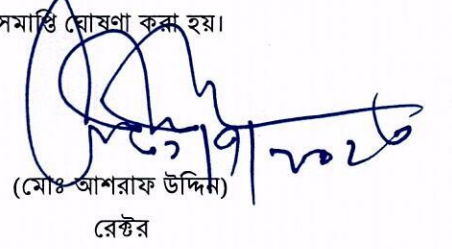 সমাপ্তি ঘোষণা করা হয়।
(মোঃ আশরাফ উদ্দিন)
রেক্টর